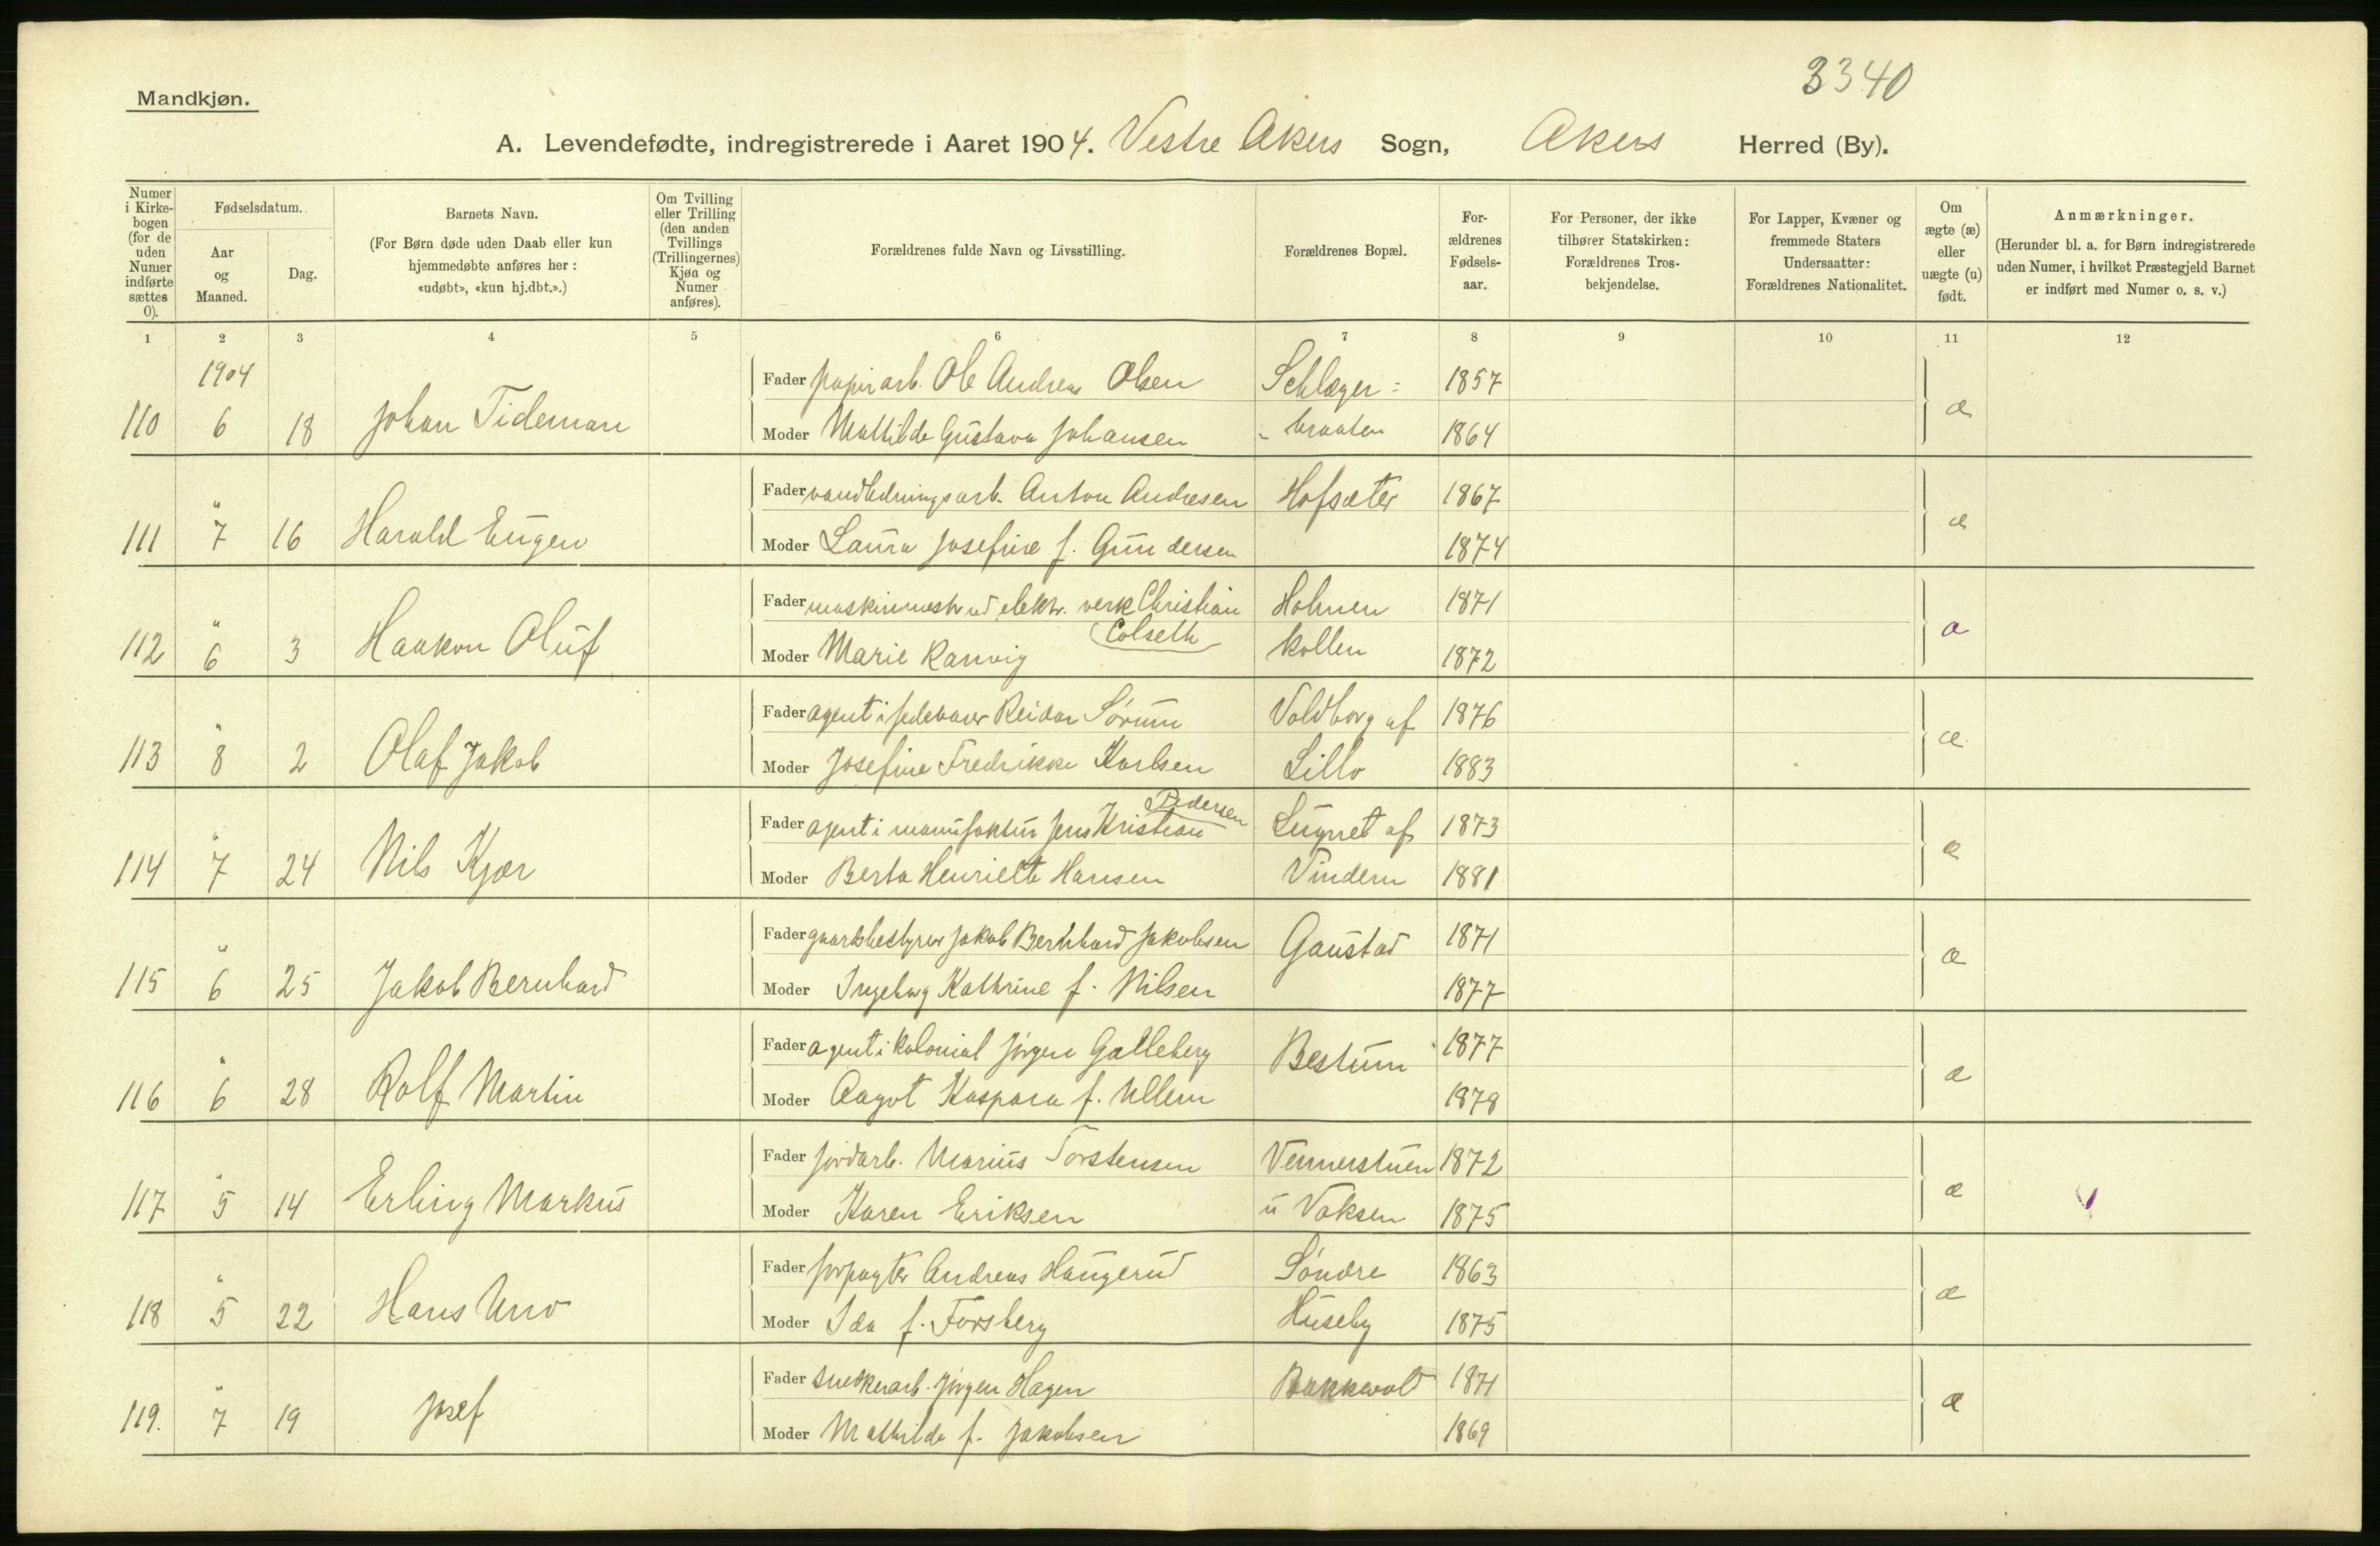 3340
Mandkjøn.
A. Levendefødte, indregistrerede i Aaret 1904. Vestre Akers Sogn, Akers Herred (By).
Numer i Kirke-bogen (for de uden Numer indførte sættes 0).
Fødselsdatum.
Aar og Maaned.
Dag.
Barnets Navn.
(For Børn døde uden Daab eller kun hjemmedøbte anføres her: «udøbt», «kun hj.dbt.».)
Om Tvilling eller Trilling (den anden Tvillings (Trillingernes) Kjøn og Numer anføres).
Forældrenes fulde Navn og Livsstilling.
Forældrenes Bopæl.
For-ældrenes Fødsels-aar.
For Personer, der ikke tilhører Statskirken: Forældrenes Tros-bekjendelse.
For Lapper, Kvæner og fremmede Staters Undersaatter: Forældrenes Nationalitet.
Om ægte (æ) eller uægte (u) født.
Anmærkninger.
(Herunder bl. a. for Børn indregistrerede uden Numer, i hvilket Præstegjeld Barnet er indført med Numer o. s. v.)
1 2 3 4 5 6 7 8 9 10 11 12
1904
Fader papirarb. Ole Andreas Olsen Schlager= 1857
110 6 18 Johan Tideman æ
Moder Mathilde Gustava Johansen - braaten 1864
Fader vandledningsarb. Anton Andresen Hofsæter 1867
111 " 7 16 Harald Eugen æ
Moder Laura Josefine f. Gundersen 1874
Fader maskinmestr ved elektr. verk Christian Colseth Holmen 1871
112 " 6 3 Haakon Oluf æ
Moder Marie Ranvig kollen 1872
Fader agent i Reidar Sørum Voldborg af 1876
113 " 8 2 Olaf Jakob æ
Moder Josefine Fredrikke Karlsen Lillo 1883
Fader agent i manufaktur Jens Kristian Pedersen Lugnet af 1873
114 " 7 24 Nils Kjær æ
Moder Berta Henriette Hansen Vindern 1881
Fader gaardsbestyrer Jakob Bernhard Jakobsen Gaustad 1871
115 " 6 25 Jakob Bernhard æ
Moder Ingeborg Kathrine f. Nilsen 1877
Fader agent i kolonial Jørgen Galleberg Bestum 1877
116 " 6 28 Rolf Martin æ
Moder Aagot Kaspara f. Ullern 1878
Fader jordarb. Marius Torstensen Vennerstuen 1872
117 " 5 14 Erling Markus æ
Moder Karen Eriksen u Voksen 1875
Fader forpagter Andreas Haugerud Søndre 1863
118 " 5 22 Hans Uno æ
Moder Ida f. Forsberg Huseby 1875
Fader snekkerarb. Jørgen Hagen Bakkevold 1871
119. " 7 19 Josef æ
Moder Mathilde f. Jakobsen 1869